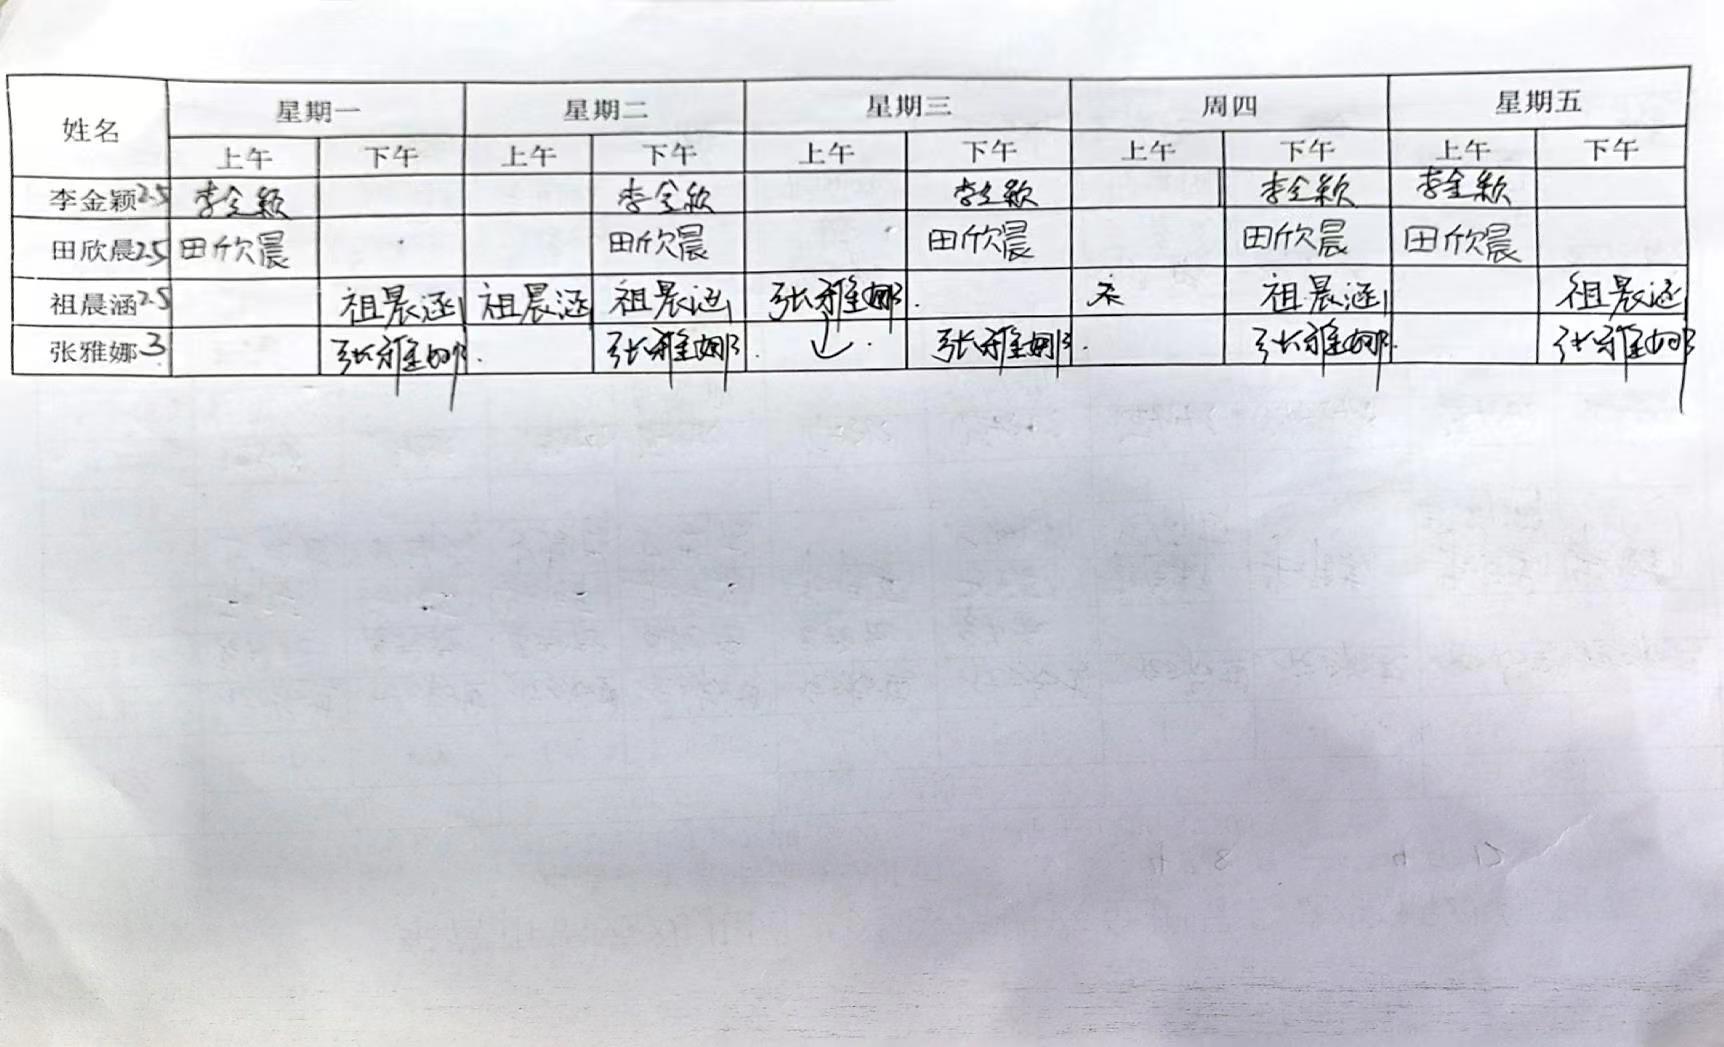 姓名 星期一 星期二 星期三 周四 星期五
上午 下午 上午 下午 上午 下午 上午 下午 上午 下午
李金颖2.5 李金颖 李金颖 李金颖 李金颖 李金颖
田欣晨2.5 田欣晨 田欣晨 田欣晨 田欣晨 田欣晨
祖晨涵2.5 祖晨涵 祖晨涵 祖晨涵 张雅娜 祖晨涵 祖晨涵
张雅娜3 张雅娜 张雅娜 张雅娜 张雅娜 张雅娜